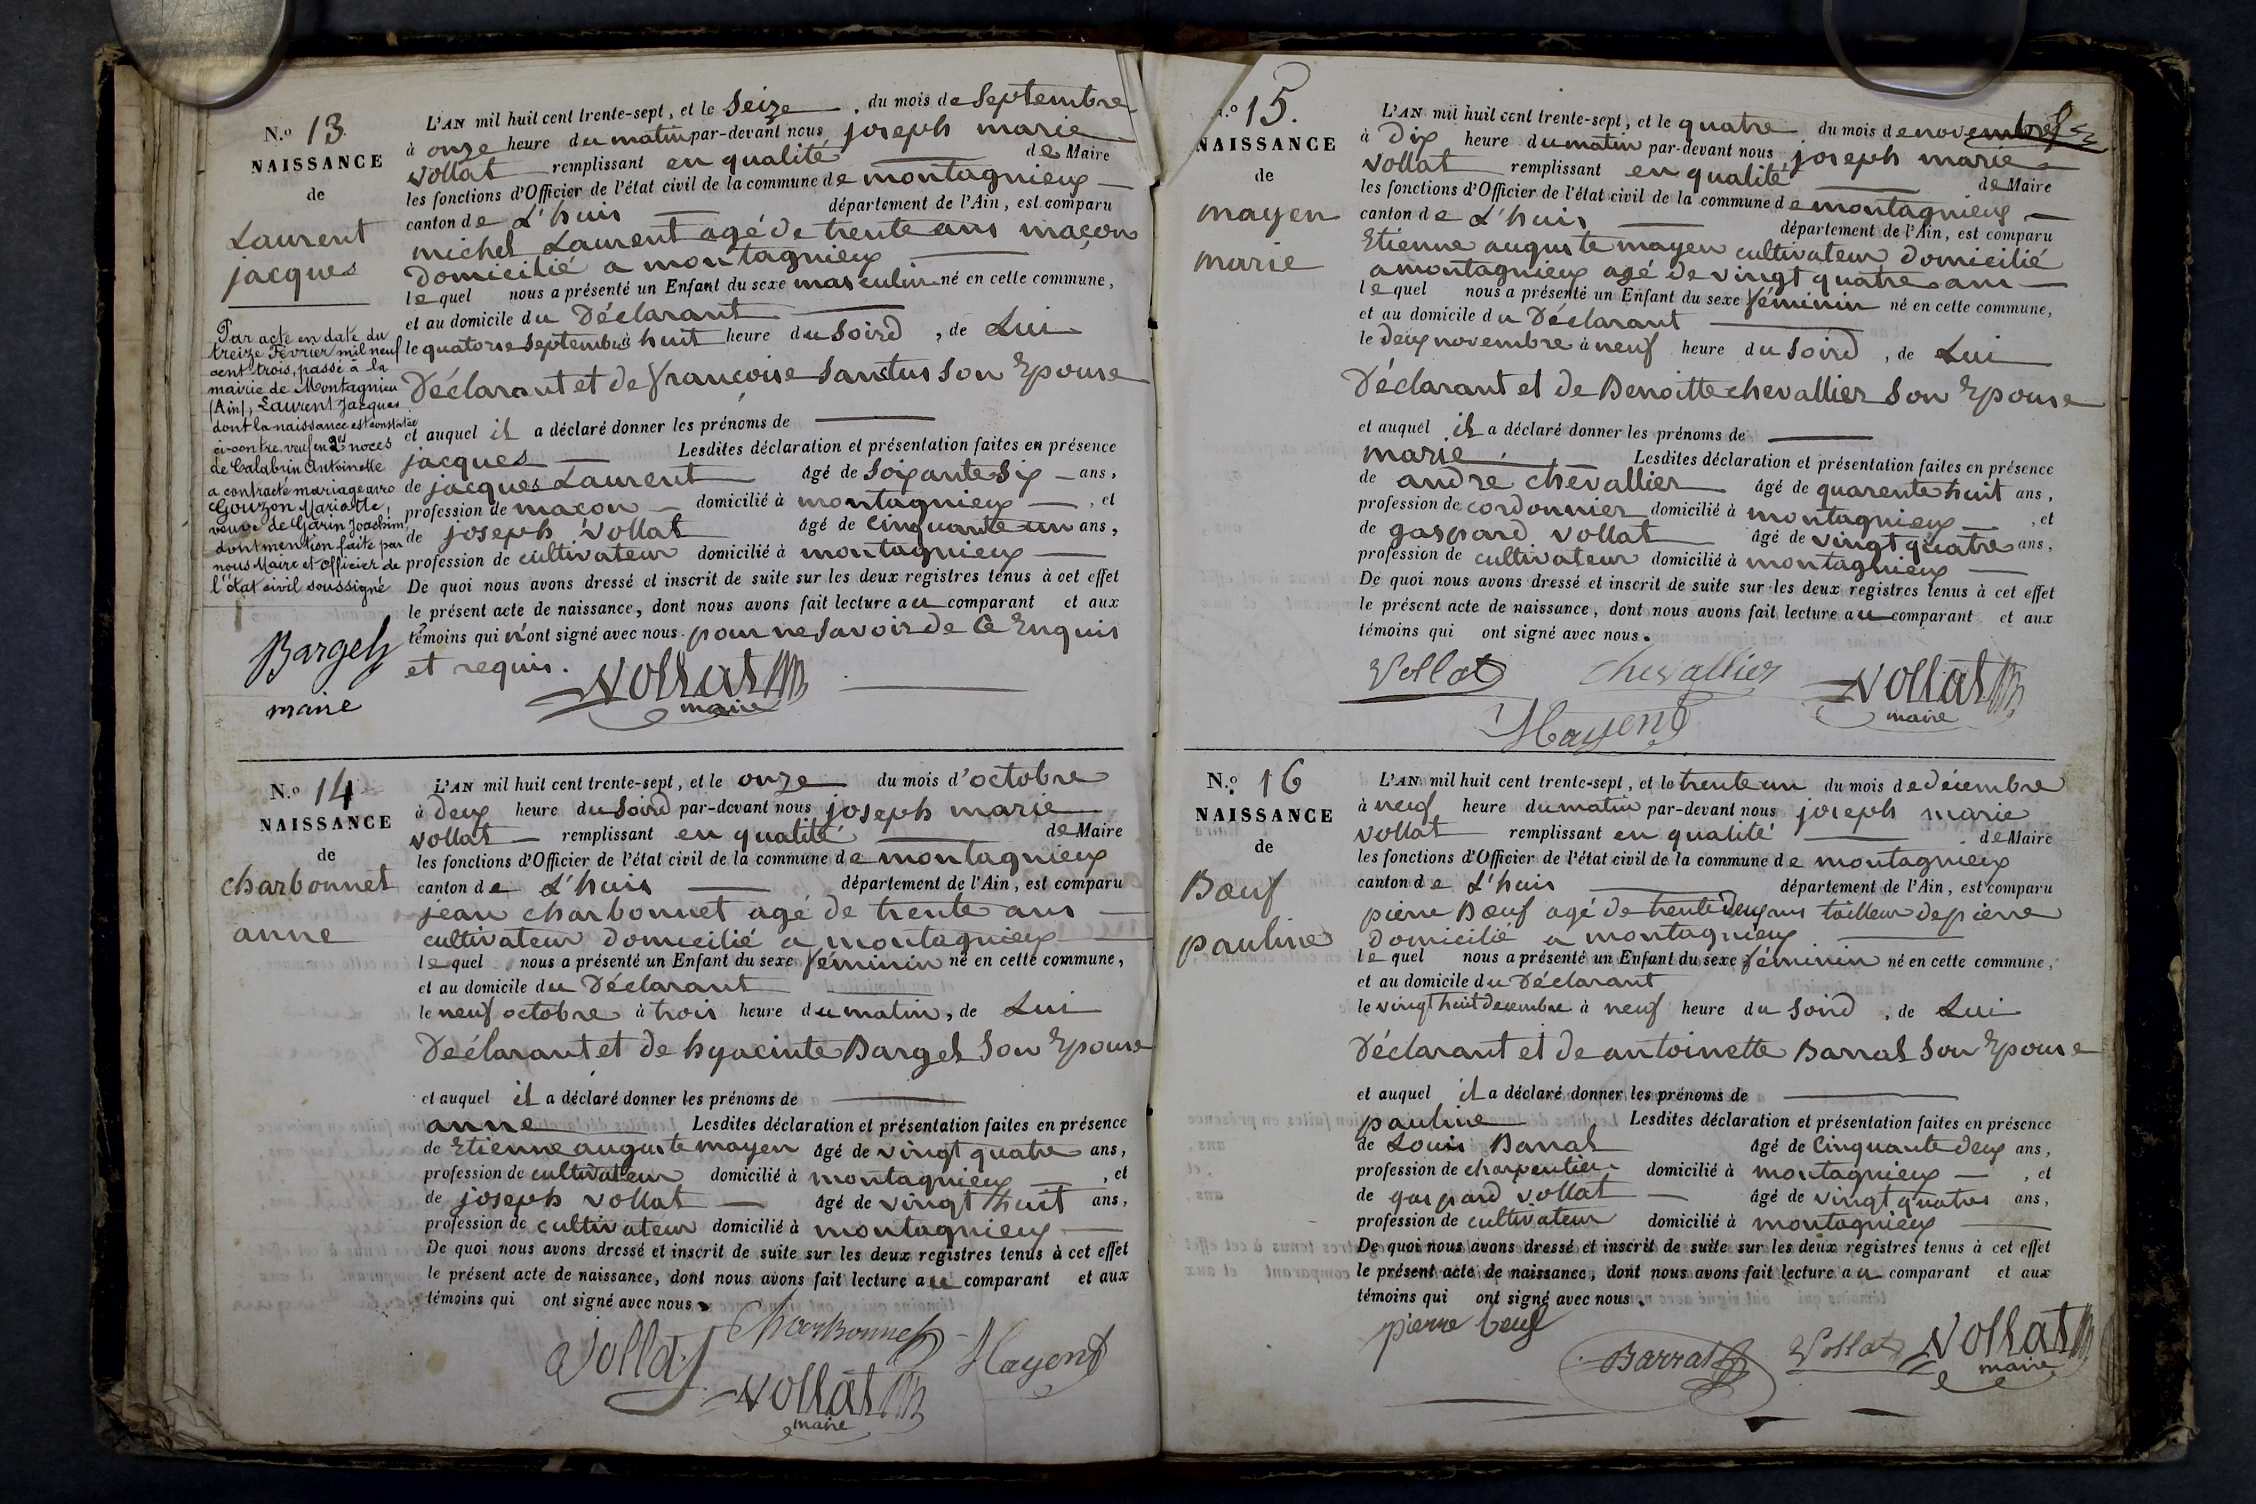 N.o 13.
NAISSANCE
de
Laurent
jacques
Par acte en date du
treize Février mil neuf
cent trois, passé à la
mairie de Montagnieu
(Ain), Laurent Jacques
dont la naissance est constatée
ci-contre, veuf en 2es noces
de Calabrin Antoinette
a contracté mariage avec
Gouzon Mariette,
veuve de Garin Joachim,
dont mention faite par
nous Maire et Officier de
l'état civil soussigné
Bargel
maire
L'AN mil huit cent trente-sept, et le Seize du mois de Septembre
à onze heure du matin par-devant nous joseph marie
vollat remplissant en qualité de Maire
les fonctions d'Officier de l'état civil de la commune de montagnieux
canton de L'huis département de l'Ain, est comparu
michel Laurent agé de trente ans maçon
Domicilié a montagnieux
lequel nous a présenté un Enfant du sexe masculin né en cette commune,
et au domicile du Déclarant
le quatorse Septembre à huit heure du Soird, de Lui
Déclarant et de françoise Sanctus Son Epouse
et auquel il a déclaré donner les prénoms de
jacques Lesdites déclaration et présentation faites en présence
de jacques Laurent âgé de Soixante Six ans,
profession de maçon domicilié à montagnieux, et
de joseph vollat âgé de Cinquante un ans,
profession de cultivateur domicilié à montagnieux
De quoi nous avons dressé et inscrit de suite sur les deux registres tenus à cet effet
le présent acte de naissance, dont nous avons fait lecture au comparant et aux
témoins qui n'ont signé avec nous. pour ne Savoir de Ce Enquis
et requis. Vollat
maire
N.o 14
NAISSANCE
de
charbonnet
anne
L'AN mil huit cent trente-sept, et le onze du mois d'octobre
à deux heure du Soird par-devant nous joseph marie
vollat remplissant en qualité de Maire
les fonctions d'Officier de l'état civil de la commune de montagnieux
canton de L'huis département de l'Ain, est comparu
jean charbonnet agé de trente ans
cultivateur domicilié a montagnieux
lequel nous a présenté un Enfant du sexe féminin né en cette commune,
et au domicile du Déclarant
le neuf octobre à trois heure du matin, de Lui
Déclarant et de hyacinte Bargel Son Epouse
et auquel il a déclaré donner les prénoms de
anne Lesdites déclaration et présentation faites en présence
de Etienne auguste mayen âgé de vingt quatre ans,
profession de cultivateur domicilié à montagnieux, et
de joseph vollat âgé de vingt huit ans,
profession de cultivateur domicilié à montagnieux
De quoi nous avons dressé et inscrit de suite sur les deux registres tenus à cet effet
le présent acte de naissance, dont nous avons fait lecture au comparant et aux
témoins qui ont signé avec nous.
Vollat Charbonnet Mayend
Vollat
maire
N.o 15.
NAISSANCE
de
mayen
marie
L'AN mil huit cent trente-sept, et le quatre du mois de novembre
à Dix heure du matin par-devant nous joseph marie
vollat remplissant en qualité de Maire
les fonctions d'Officier de l'état civil de la commune de montagnieux
canton de L'huis département de l'Ain, est comparu
Etienne auguste mayen cultivateur domicilié
a montagnieux agé de vingt quatre ans
lequel nous a présenté un Enfant du sexe féminin né en cette commune,
et au domicile du Déclarant
le deux novembre à neuf heure du Soird, de Lui
Déclarant et de Benoitte chevallier Son Epouse
et auquel il a déclaré donner les prénoms de
marie. Lesdites déclaration et présentation faites en présence
de andré chevallier âgé de quarente huit ans,
profession de cordonnier domicilié à montagnieux, et
de gaspard vollat âgé de vingt quatre ans,
profession de cultivateur domicilié à montagnieux
De quoi nous avons dressé et inscrit de suite sur les deux registres tenus à cet effet
le présent acte de naissance, dont nous avons fait lecture au comparant et aux
témoins qui ont signé avec nous.
Vollat chevallier Vollat
maire
Mayend
N.o 16
NAISSANCE
de
Bœuf
pauline
L'AN mil huit cent trente-sept, et le trente un du mois de décembre
à neuf heure du matin par-devant nous joseph marie
vollat remplissant en qualité de Maire
les fonctions d'Officier de l'état civil de la commune de montagnieux
canton de L'huis département de l'Ain, est comparu
pierre Bœuf agé de trente Deux ans tailleur de pierre
domicilié a montagnieux
lequel nous a présenté un Enfant du sexe féminin né en cette commune,
et au domicile du Déclarant
le vingt huit decembre à neuf heure du Soird, de Lui
Déclarant et de antoinette Barral Son Epouse
et auquel il a déclaré donner les prénoms de
pauline Lesdites déclaration et présentation faites en présence
de Louis Barral âgé de Cinquante deux ans,
profession de charpentier domicilié à montagnieux, et
de gaspard vollat âgé de vingt quatre ans,
profession de cultivateur domicilié à montagnieux
De quoi nous avons dressé et inscrit de suite sur les deux registres tenus à cet effet
le présent acte de naissance, dont nous avons fait lecture au comparant et aux
témoins qui ont signé avec nous.
pierre beuf
Barral Vollat Vollat
maire